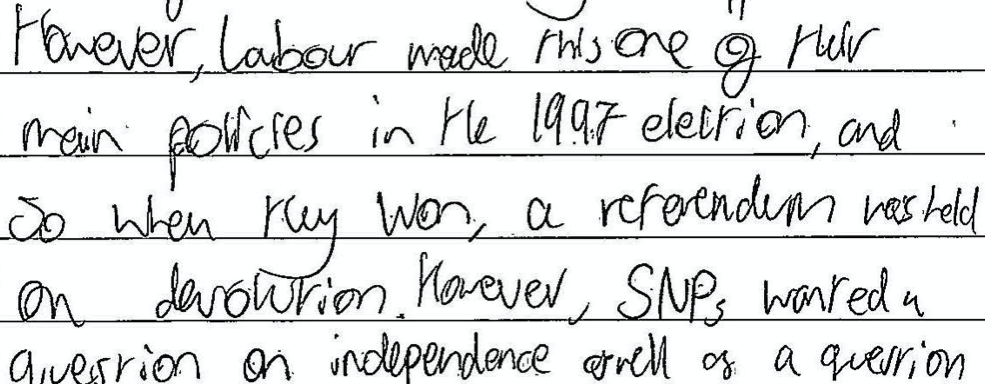 However, Labour made this one of their
main policies in the 1997 election, and
so when they won, a referendum was held
on devolution. However, SNPs wanted a
question on independence aswell as a question